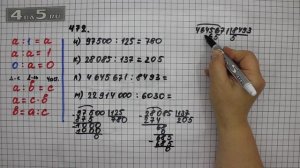 4·5·
472.
a : 1 = a
a : a = 1
0 : a = 0
a : b = c
a = c·b
b = a : c
и) 97500 : 125 = 780
к) 28085 : 137 = 205
л) 4645671 : 8493 =
м) 22914000 : 6030 =
97500 125
780
1000
0
28085 137
274 205
685
685
0
4645671 8493